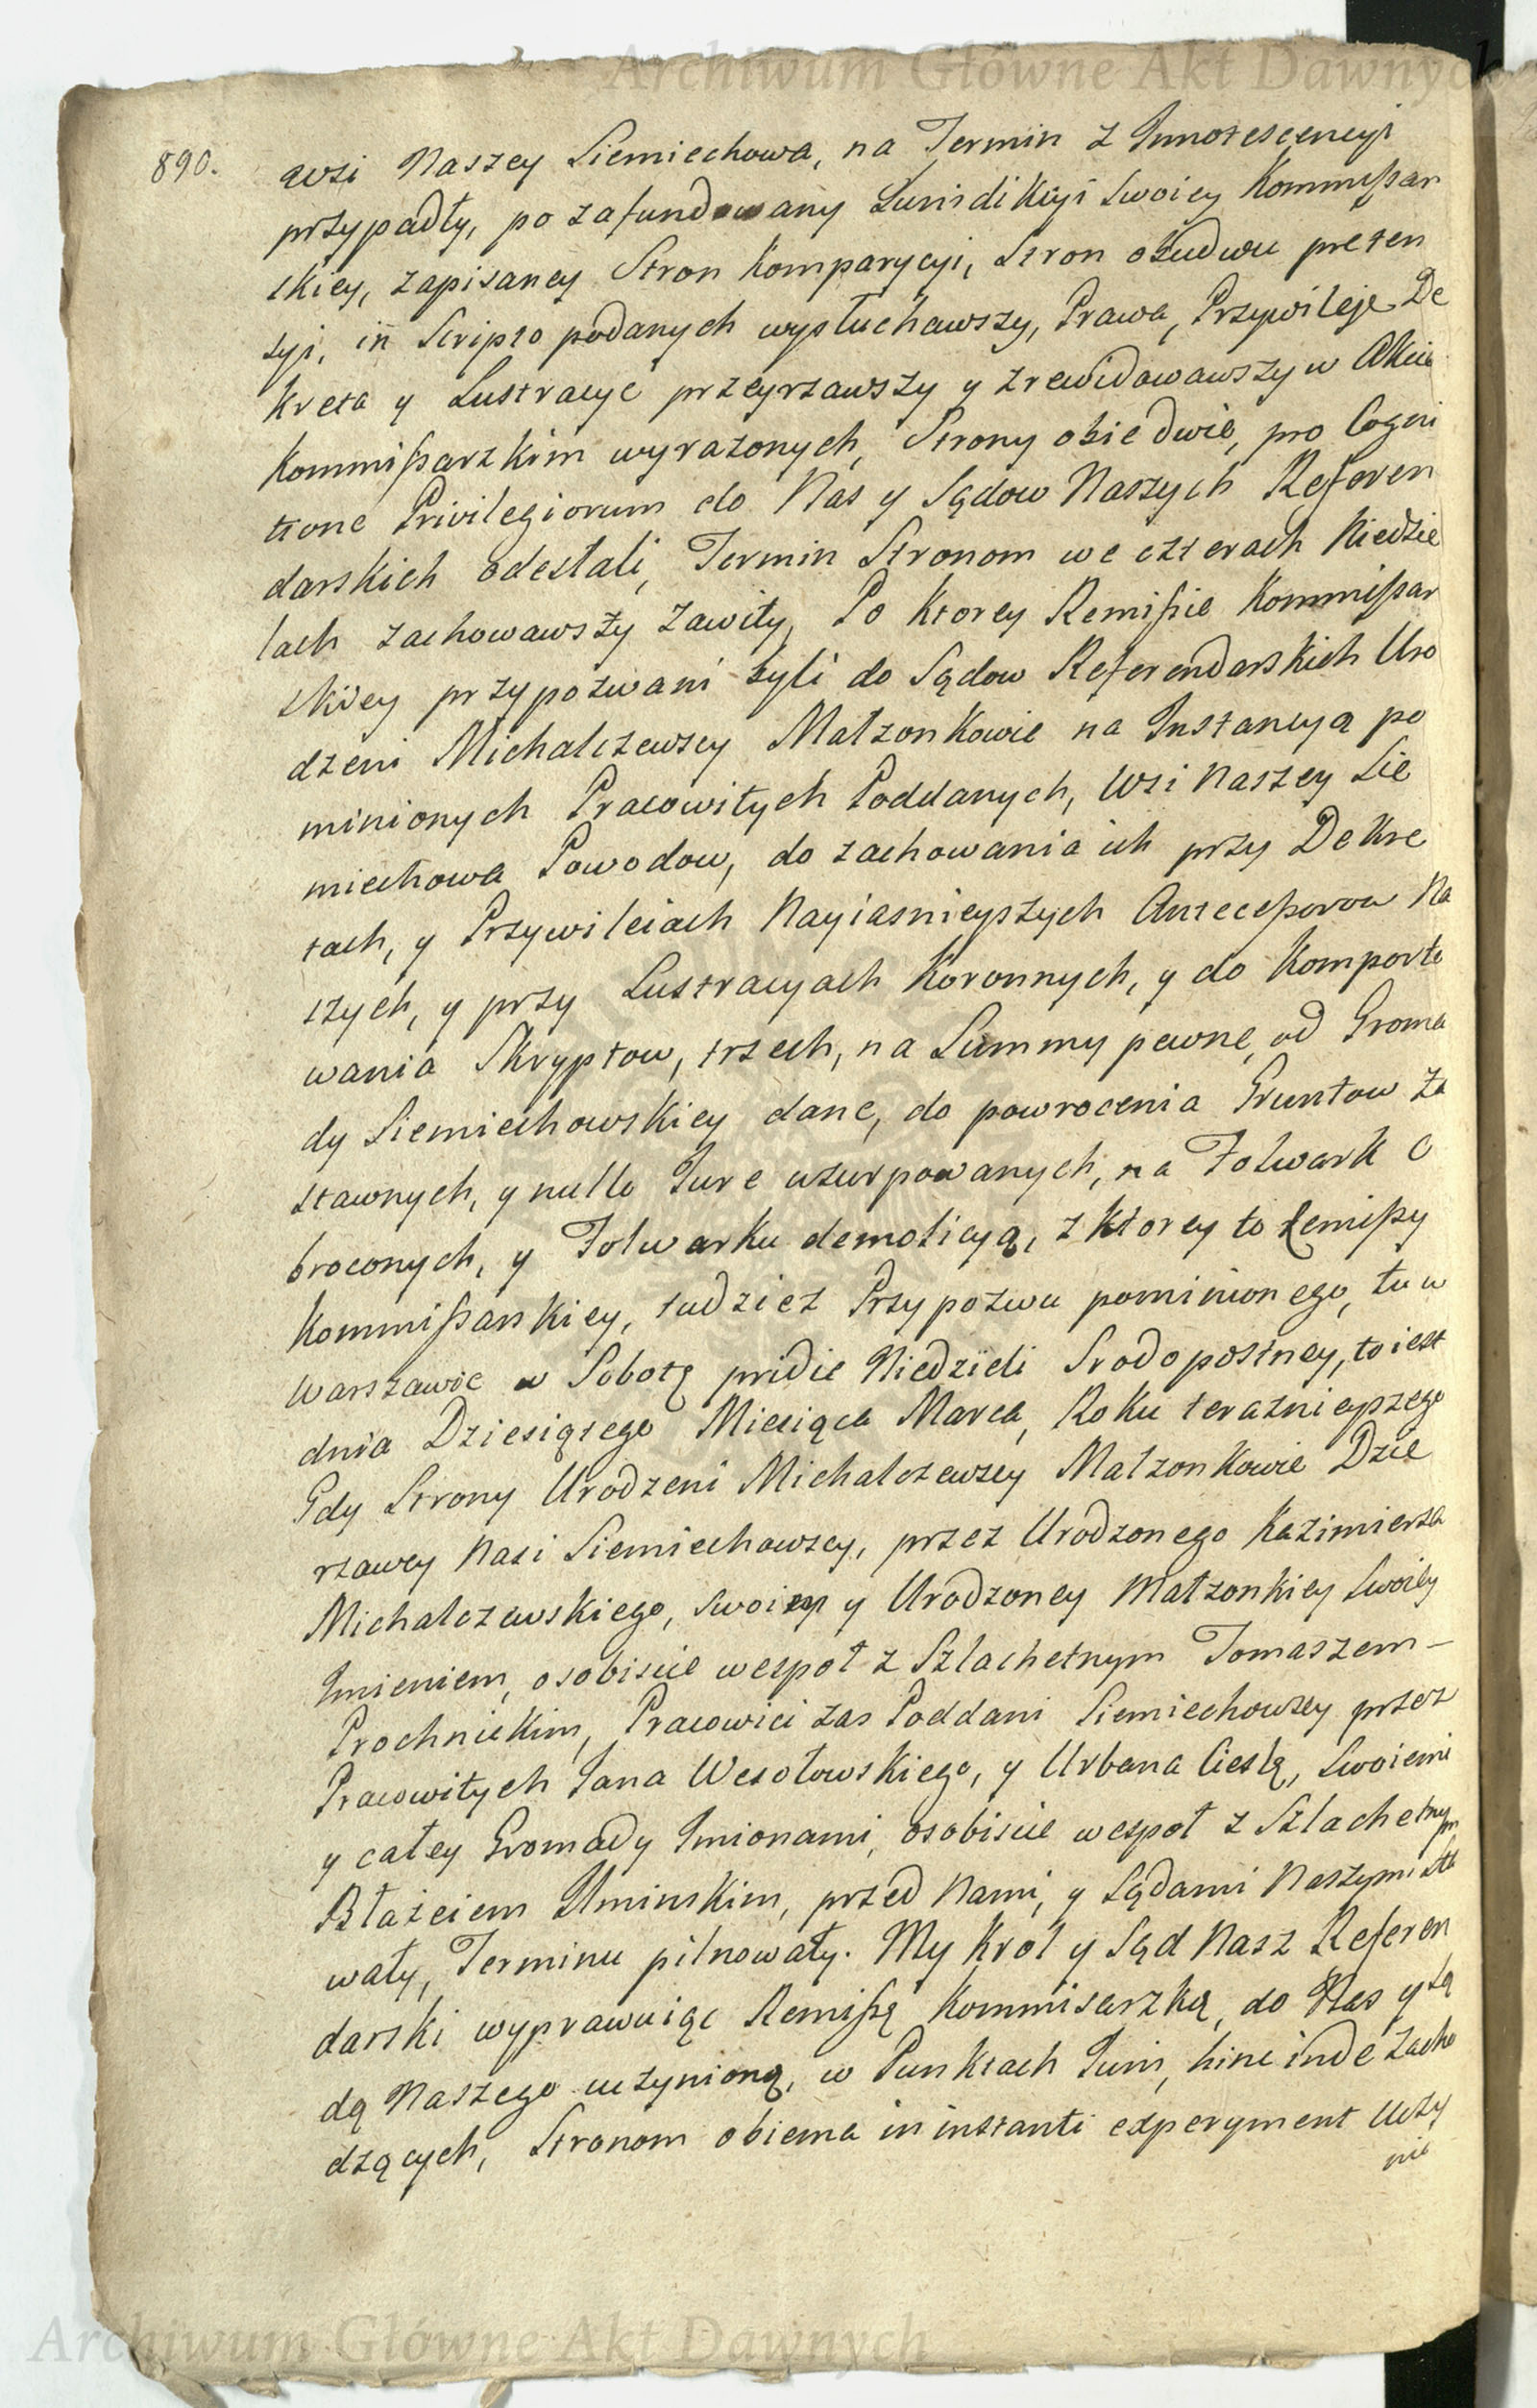 Archiwum Główne Akt Dawnych
890.
Wsi Naszey Siemiechowa, na Termin z Innotescencyi
przypadły, po zafundowany Jurisdikcyi Swoiey Kommißar
skiey, zapisaney Stron Komparycyi, Stron obudwu preten
syi, in Scripto podanych wysłuchawszy, Prawa, Przywileje De
kreta y Lustracye przeyrzawszy y zrewidowawszy w Akcie
Kommißarzkim wyrazonych, Strony obiedwie, pro Cogni
tione Privilegiorum do Nas y Sądow Naszych Referen
darskich odesłali, Termin Stronom we czterach Niedzie
lach zachowawszy zawity, Po Ktorey Remißie Kommißar
skiey przypozwani byli do Sądow Referendarskich Uro
dzeni Michalczewscy Małzonkowie na Instancyą po
minionych Pracowitych Poddanych, Wsi Naszey Sie
miechowa Powodow, do zachowania ich przy Dekre
tach, y Przywileiach Nayiasnieyszych Anteceßorow Na
szych, y przy Lustracyach Koronnych, y do Komporto
wania Skryptow, trzech, na Summy pewne od Groma
dy Siemiechowskiey dane, do powrocenia Gruntow Za
stawnych, y nullo Jure uzurpowanych, na Folwark O
broconych, y Folwarku demolicyą, z Ktorey to Remißy
Kommißarskiey, tudziez Przypozwu pominionego, tu w
Warszawie w Sobotę pridie Niedzieli Srodopostney, to iest
dnia Dziesiątego Miesiąca Marca, Roku teraznieyszego
Gdy Strony Urodzeni Michalczewscy Małzonkowie Dzie
rzawcy Nasi Siemiechowscy, przez Urodzonego Kazimierza
Michalczewskiego, swoim y Urodzoney Małzonkiey Swoiey
Imieniem, osobiscie wespoł z Szlachetnym Tomaszem –
Prochnickim, Pracowici zas Poddani Siemiechowscy przez
Pracowitych Jana Wesołowskiego, y Urbana Cieslą, Swoiemi
y całey Gromady Imionami, osobiscie wespoł z Szlachetnym
Błażeiem Uminskim, przed Nami, y Sądami Naszymi Sta
wały, Terminu pilnowały. My Krol y Sąd Nasz Referen
darski wyprawuiąc Remißą Kommisarzką, do Nas y Są
dą Naszego uczynioną, w Punktach Juris, hinc inde Zacho
dzących, Stronom obiema in instanti experyment Uczy
nie
Archiwum Główne Akt Dawnych